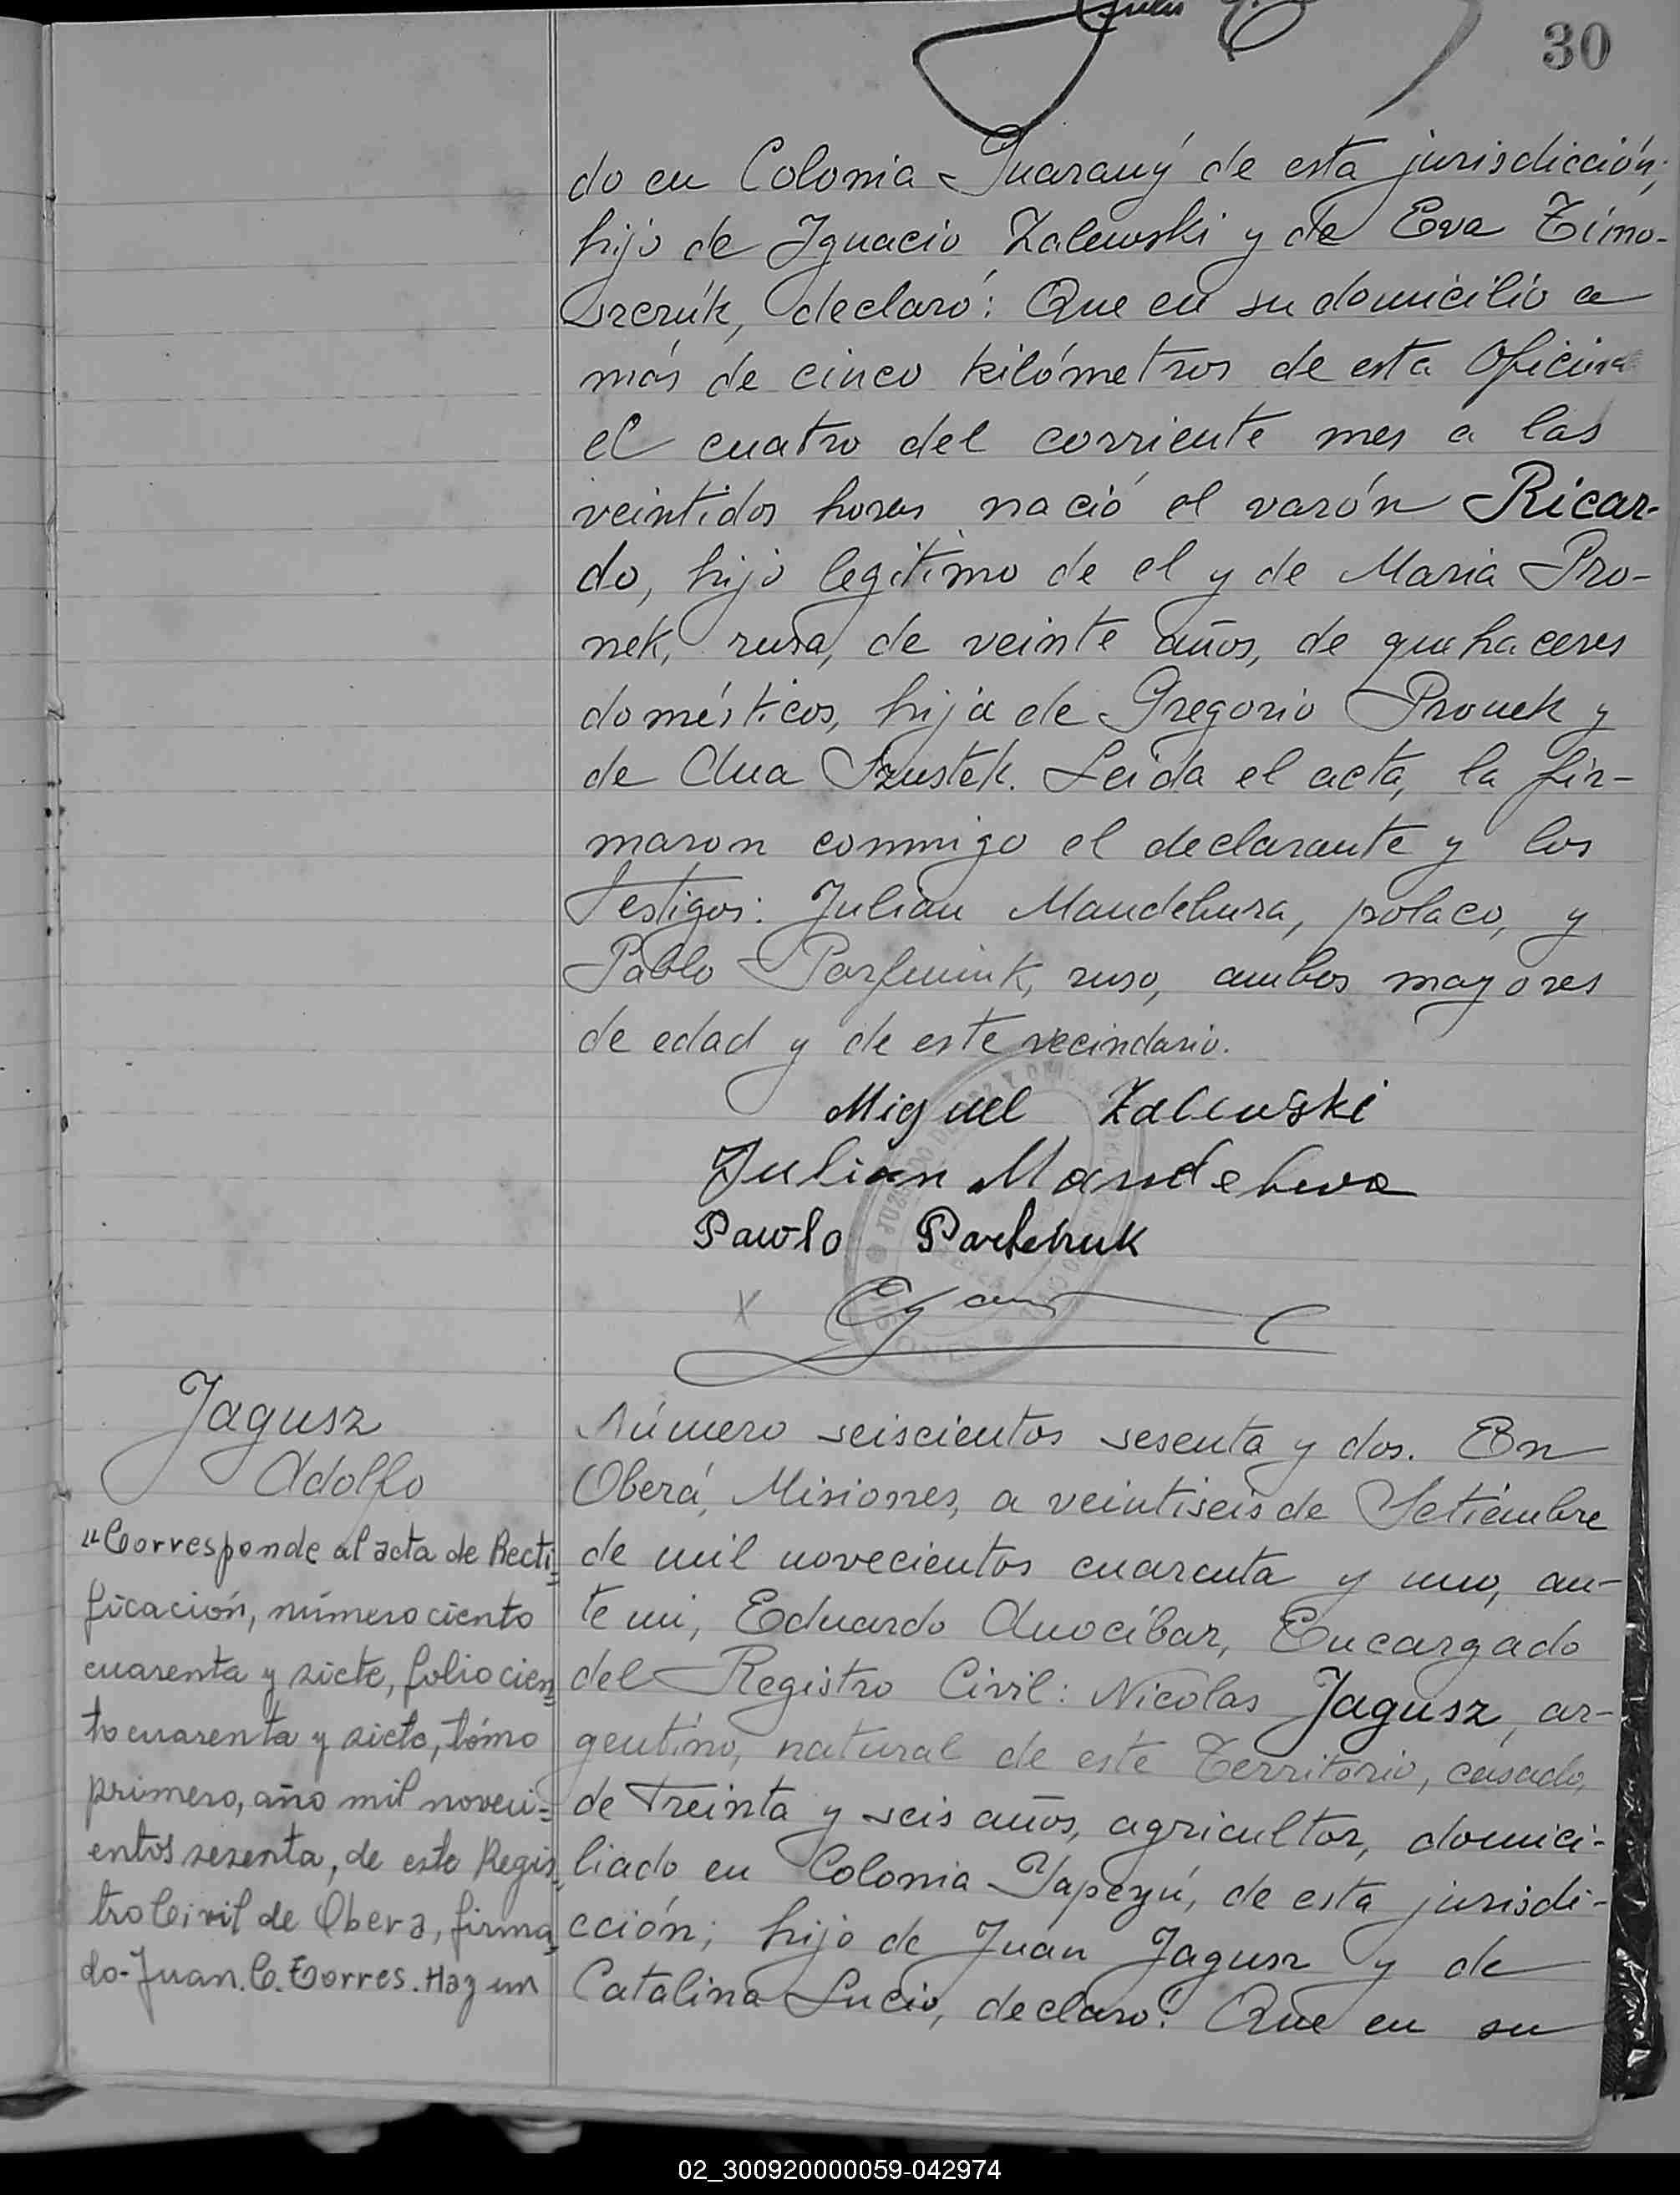 30
do en Colonia Guaraný de esta jurisdicción;
hijo de Ignacio Zalewski y de Eva Timo-
szczúk, declaró: Que en su domicilio a
más de cinco kilómetros de esta Oficina
el cuatro del corriente mes a las
veintidos horas nació el varón Ricar-
do, hijo legítimo de el y de Maria Pro-
nek, rusa, de veinte años, de quehaceres
domésticos, hija de Gregorio Pronek y
de Ana Szustek. Leída el acta, la fir-
maron conmigo el declarante y los
testigos: Julian Mandehura, polaco, y
Pablo ruso, ambos mayores
de edad y de este vecindario.
Miguel Zalewski
Julian
Pawlo
Jagusz
Adolfo
"Corresponde al acta de Recti=
ficación, número ciento
cuarenta y siete, folio cien=
to cuarenta y siete, tómo
primero, año mil noveci=
entos sesenta, de este Regis=
tro Civil de Obera, firma=
do-Juan.C.Torres. Hay un
Número seiscientos sesenta y dos. En
Oberá, Misiones, a veintiseis de Setiembre
de mil novecientos cuarenta y uno, an-
te mi, Eduardo Anocíbar, Encargado
del Registro Civil: Nicolas Jagusz, ar-
gentino, natural de este Territorio, casado,
de treinta y seis años, agricultor, domici-
liado en Colonia Yapeyú, de esta jurisdi-
cción; hijo de Juan Jagusz y de
Catalina Lucio, declaró: Que en su
02_300920000059-042974